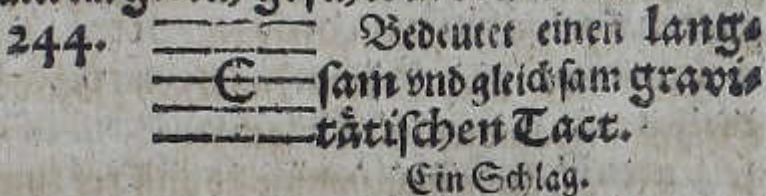 244. Bedeutet einen lang⸗
ſam vnd gleichſam gravi⸗
tåtiſchen Tact.
Ein Schlag.